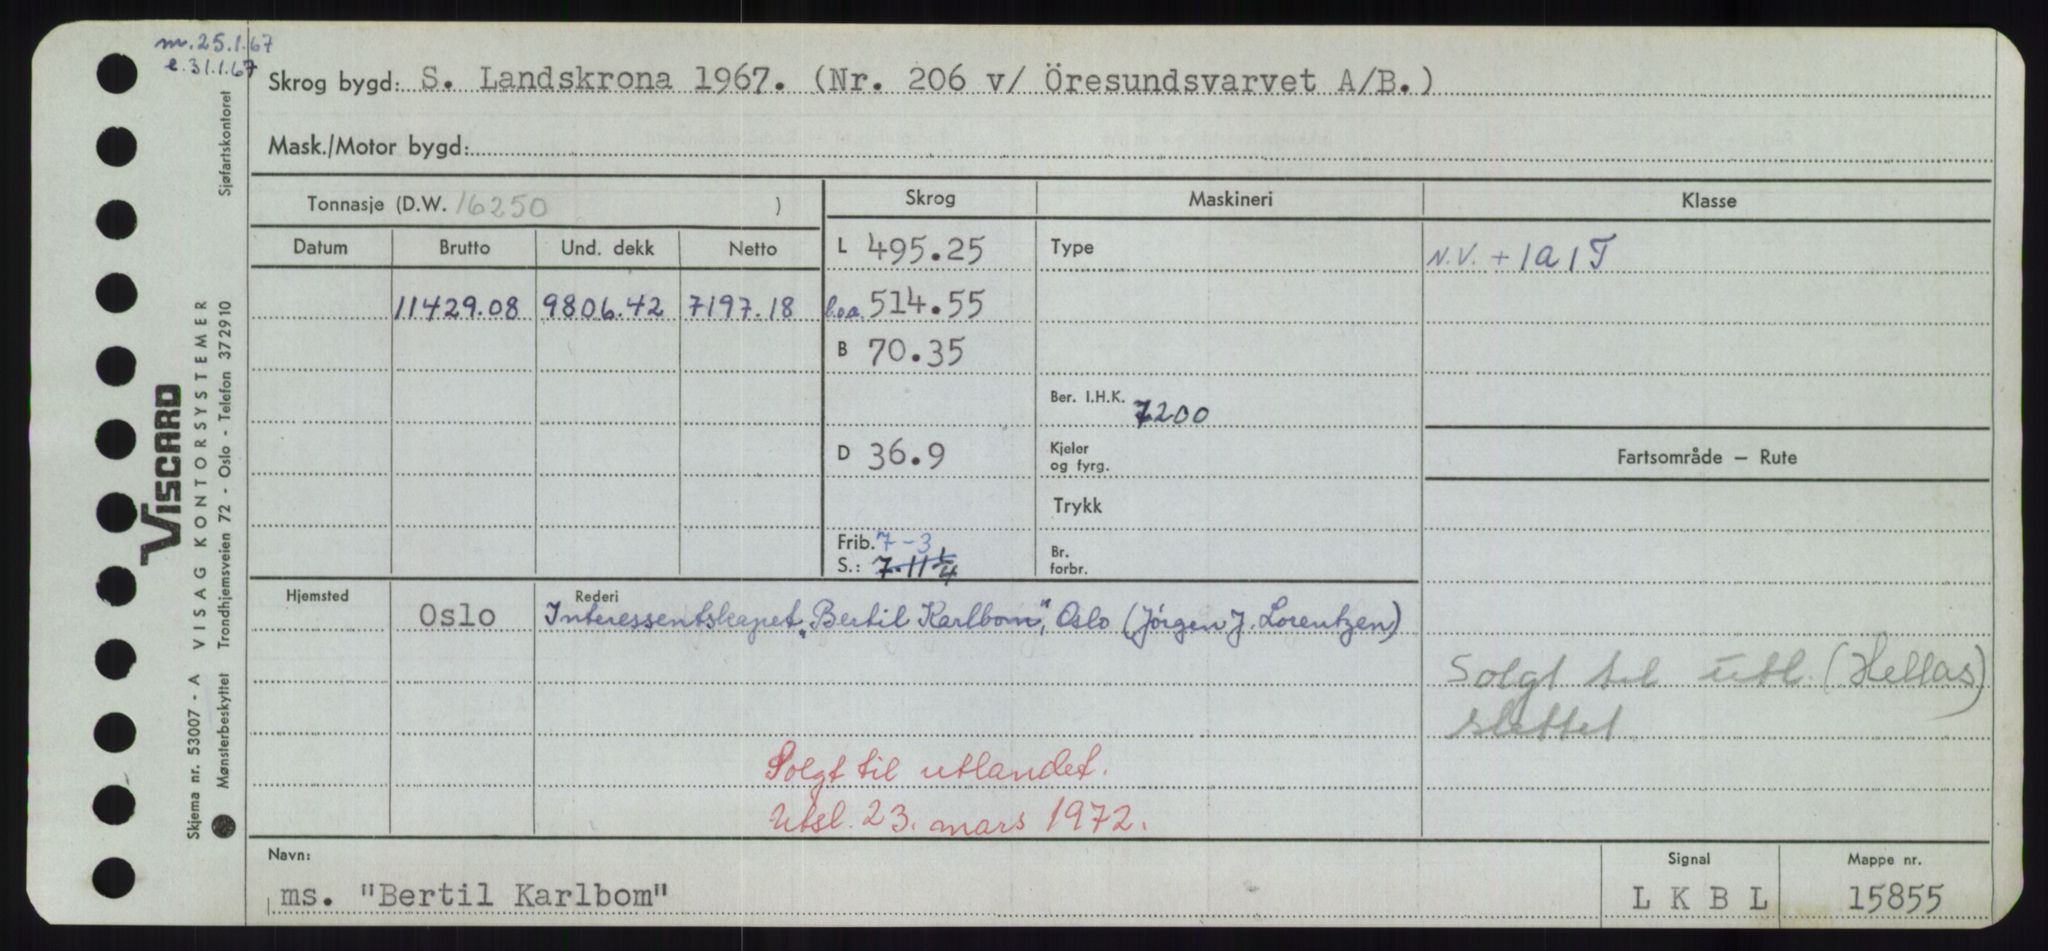 m. 25.1.67
e. 31.1.67
Skrog bygd: S. Landskrona 1967. (Nr. 206 v/ Öresundsvarvet A/B.)
Mask./Motor bygd:
Tonnasje (D.W. 16250 )
Skrog Maskineri Klasse
Datum Brutto Und. dekk Netto
L 495.25 Type N.V. + 1A1 T
11429.08 9806.42 7197.18 l.o.a. 514.55
B 70.35
Ber. I.H.K. 7200
D 36.9 Kjeler og fyrg.
Fartsområde – Rute
Trykk
Frib. 7-3
S.: 7.11 1/4
Br. forbr.
Hjemsted Oslo Rederi Interessentskapet „Bertil Karlbom", Oslo (Jörgen J. Lorentzen)
Solgt til utl. (Hellas)
slettet
Solgt til utlandet.
Utsl. 23. mars 1972.
Navn: Signal Mappe nr.
ms. "Bertil Karlbom" L K B L 15855
Skjema nr. 53007 - A VISAG KONTORSYSTEMER
Mønsterbeskyttet Trondhjemsveien 72 - Oslo - Telefon 372910 Sjøfartskontoret
VISCARD